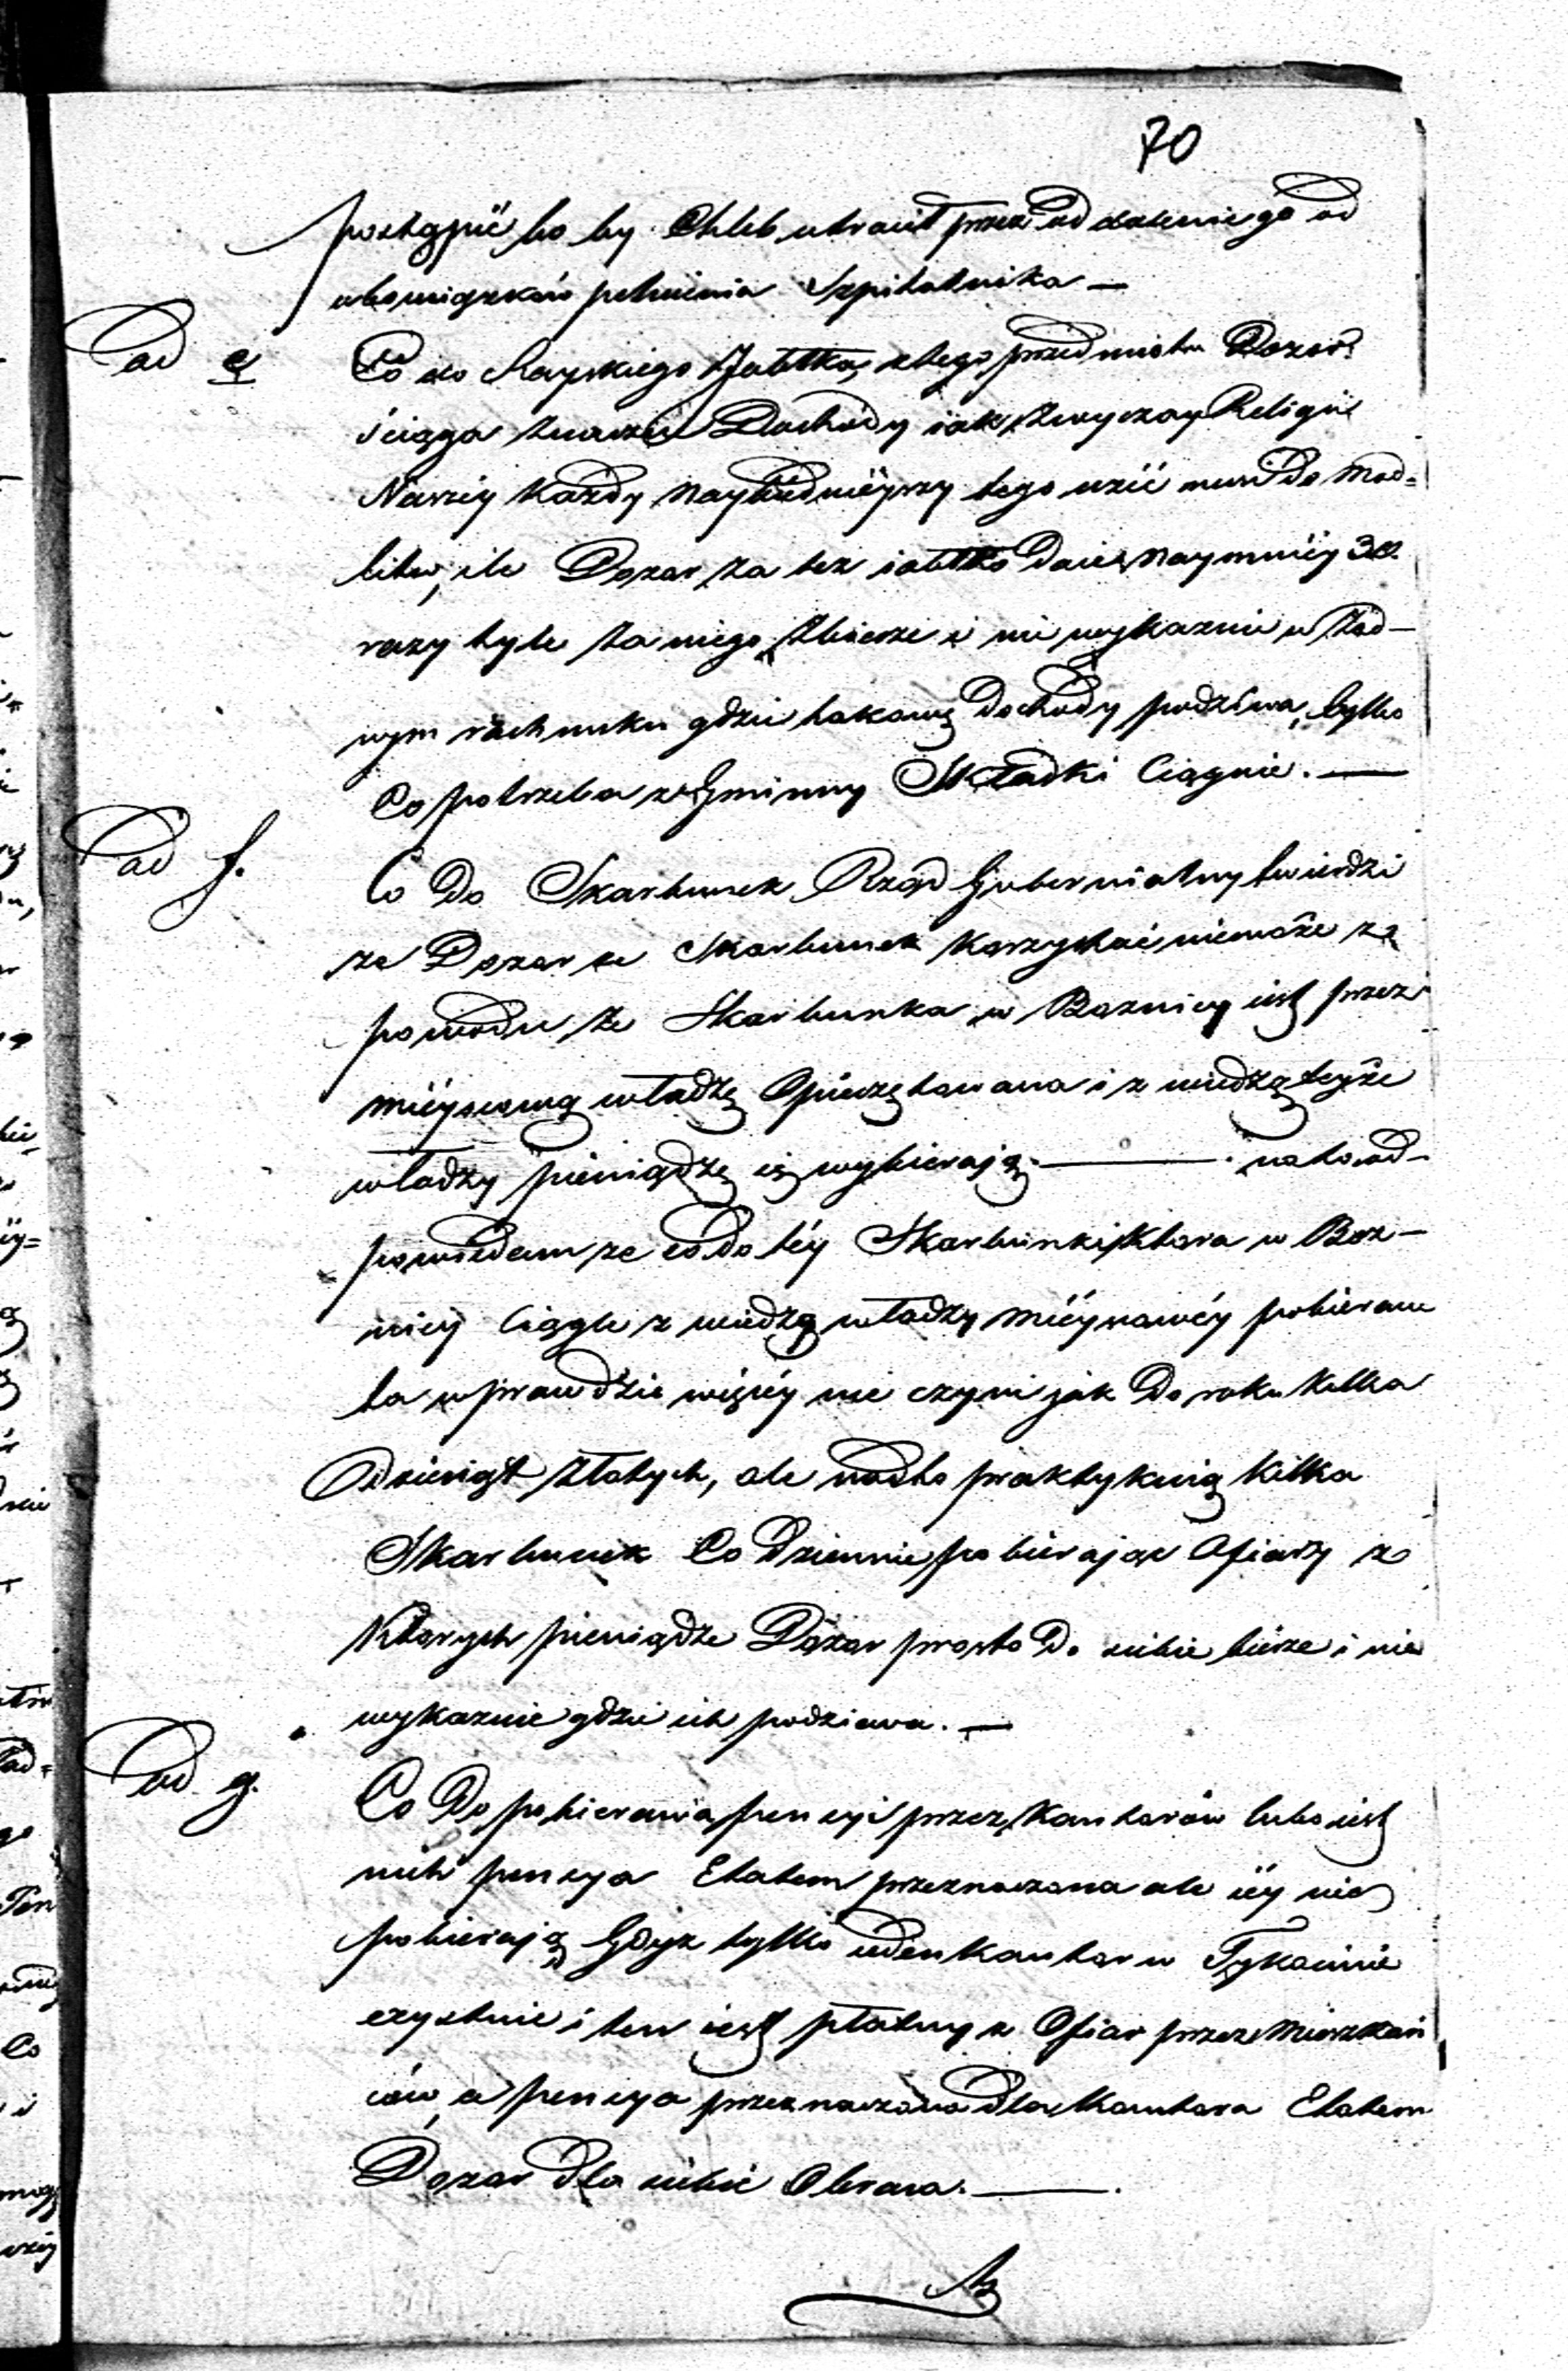 70
postąpić bo by Chleb utracił przez od dalenie go od
obowiązków pełnienia Szpitalnika —
ad e
Co do Rayskiego Jabłka, z tego przedmiotu Dozór
ściąga znaczne Dochody iak zwyczay Religii
Naszey każdy naybiednieyszy tego użić musi do mod=
litw, ile Dozor za tez iabłko daie, naymniey 30.
razy tyle za niego Zbierze i nie wykaznie w żad-
nym rachunku gdzie takowe Dochody podziwa, tylko
Co potrzeba z Gminny Składki Ciągnie. —
ad f.
Co do Skarbunek Rząd Gubernialny twierdzi
ze Dozor ze Skarbunek korzystać niemoże z
powodu ze Skarbunka w Boznicy iest przez
mieyscową władzę Opieczętowana i z wiedzą teyże
władzy pieniądze się wybierają. — na to od-
powiedam ze co do téy Skarbunki, ktora w Boz-
nicy Ciągle z wiedzą władzy mieyscowéy pobierane
ta w prawdzie więcéy nie czyni jak do roku kilka
dziesiąt złotych, ale nadto praktykuią kilka
Skarbunek Co dziennie pobierając Ofiary z
Ktorych pieniądze Dozor prosto do siebie bierze i nie
wykaznie gdzie ich podziawa. —
ad g.
Co do pobierania pencyi przez kantorów lubo iest
nich pencya Etatem przeznaczona ale iéy nie
pobierają Gdyż tylko ieden kantor w Tykocinie
exystuie i ten iest płatny z Ofiar przez Mieszkań
ców, a pencya przeznaczona dla kantora Etatem
Dozor dla siebie Obraca. —